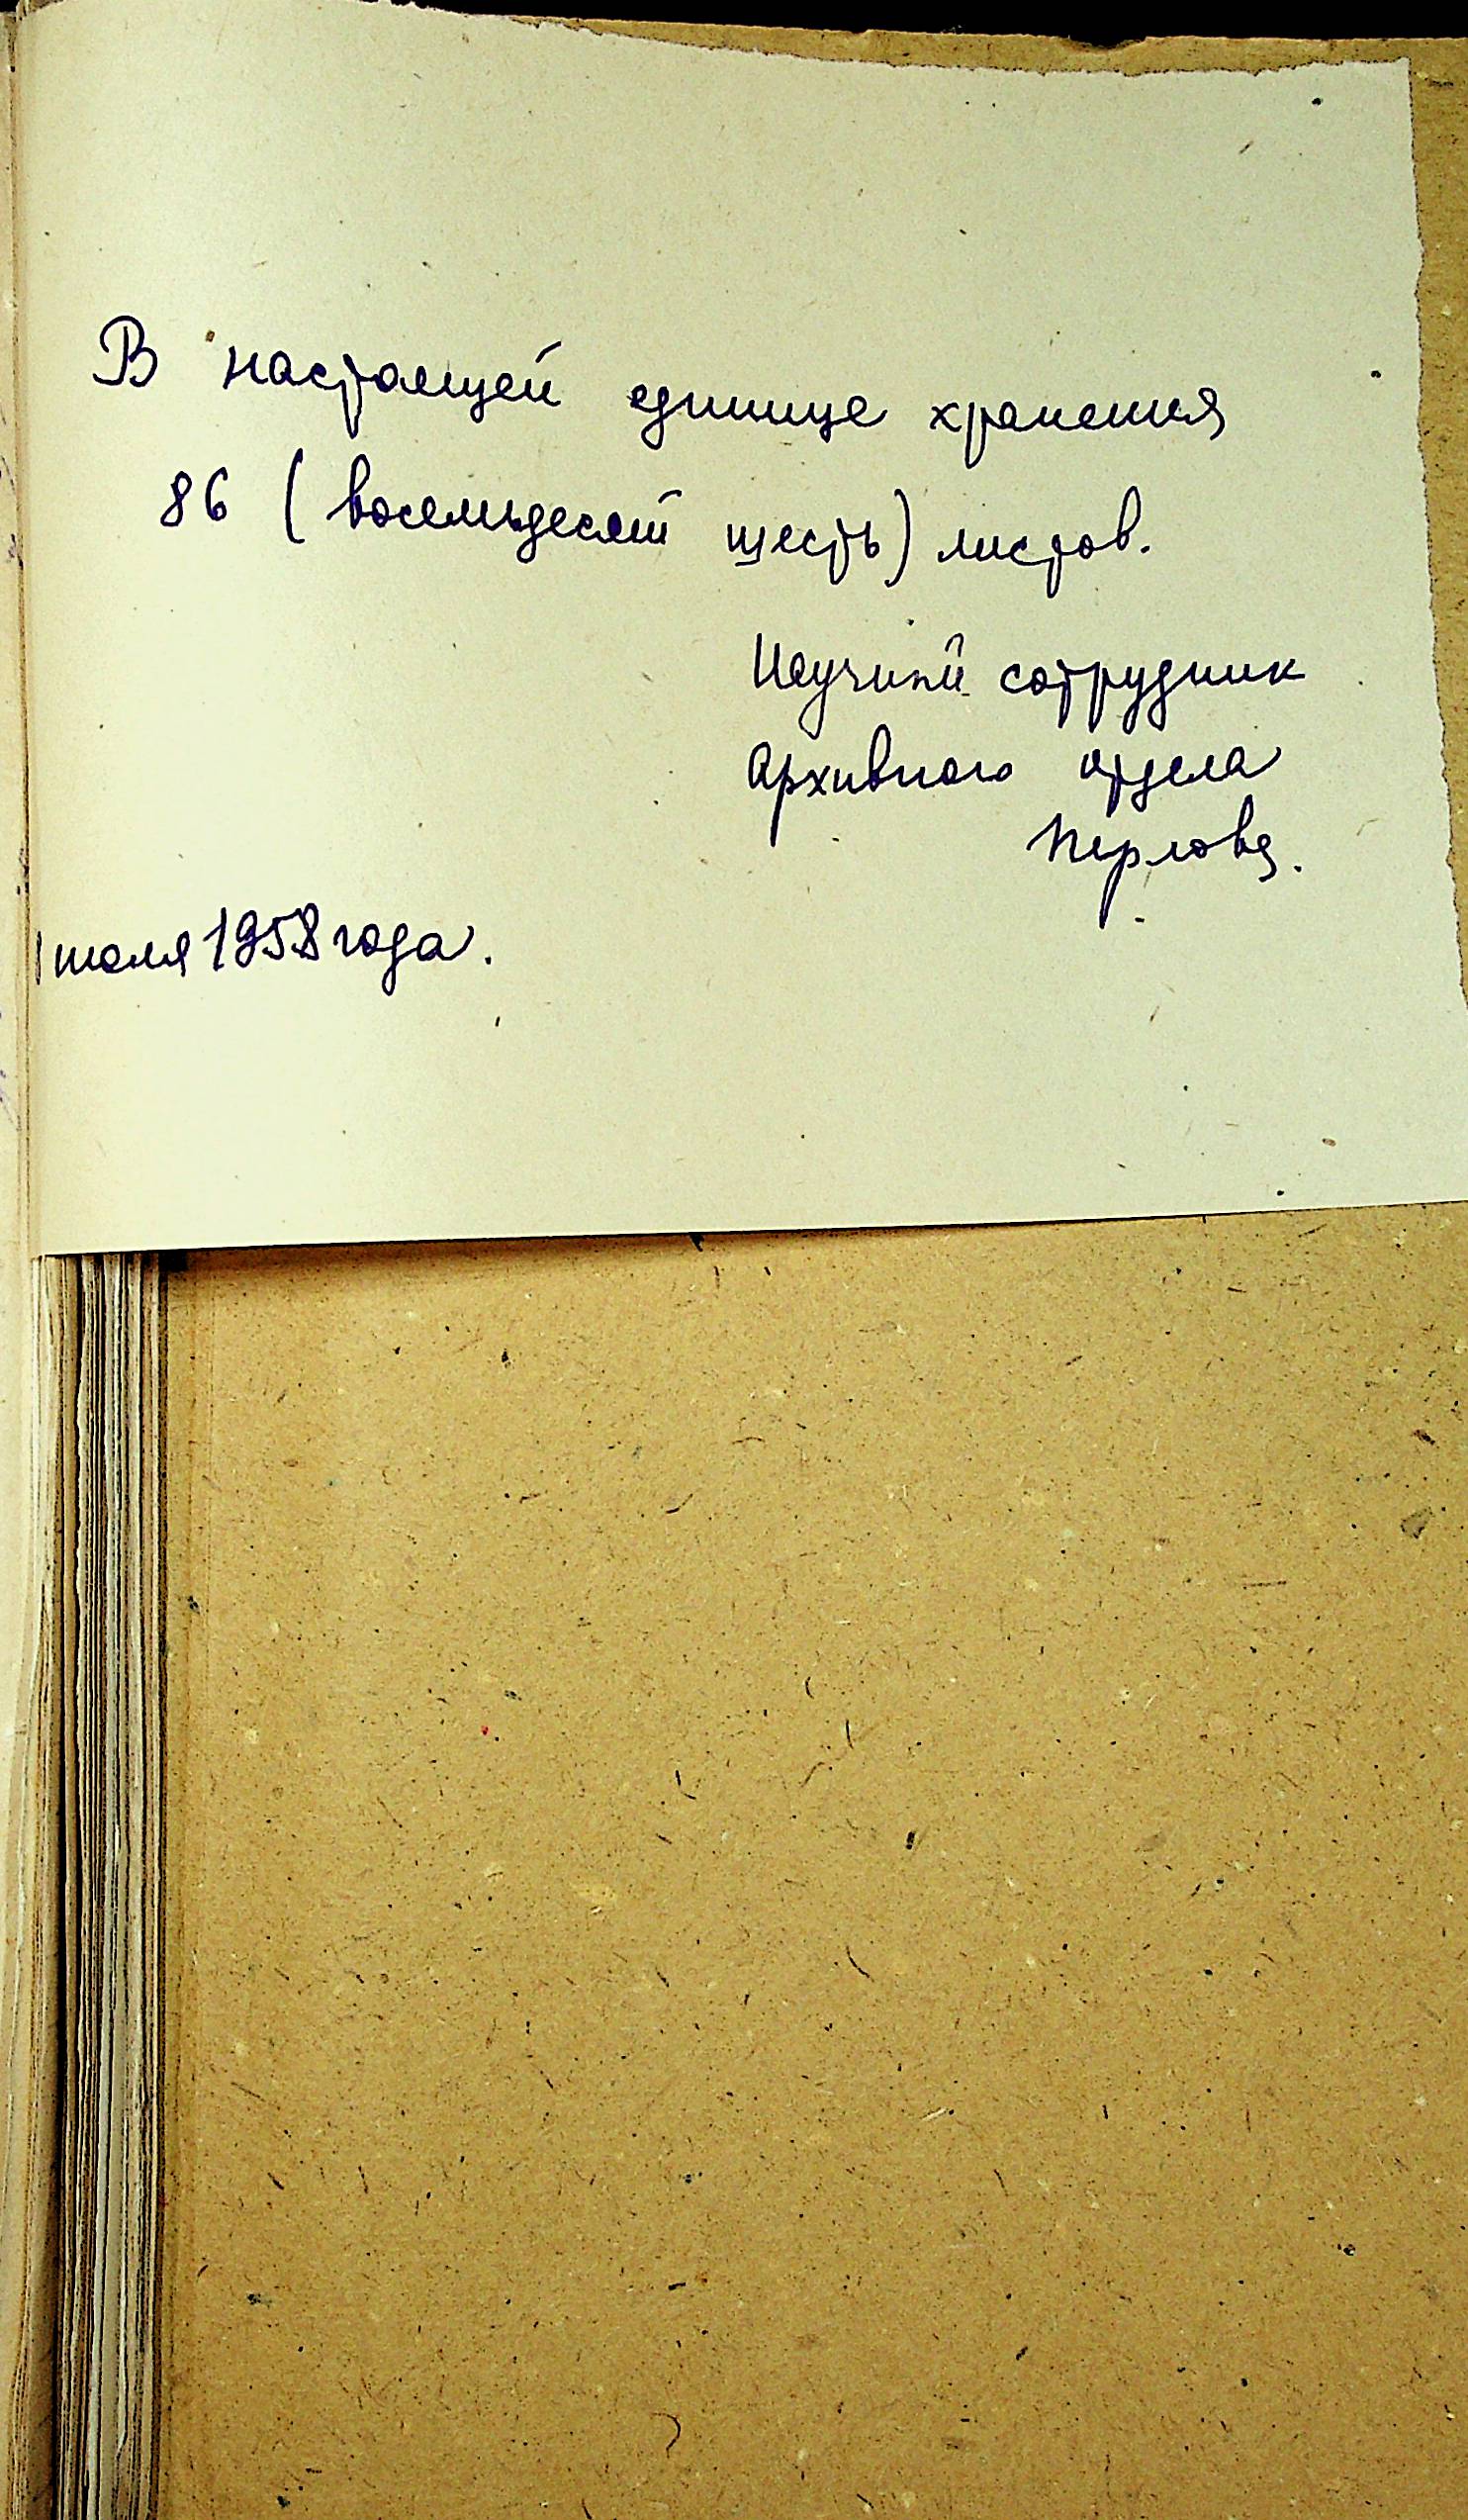 В настоящей единице хранения
86 (восемьдесят шесть) листов.
Научный сотрудник
Архивного отдела
Перлова.
1 июля 1958 года.